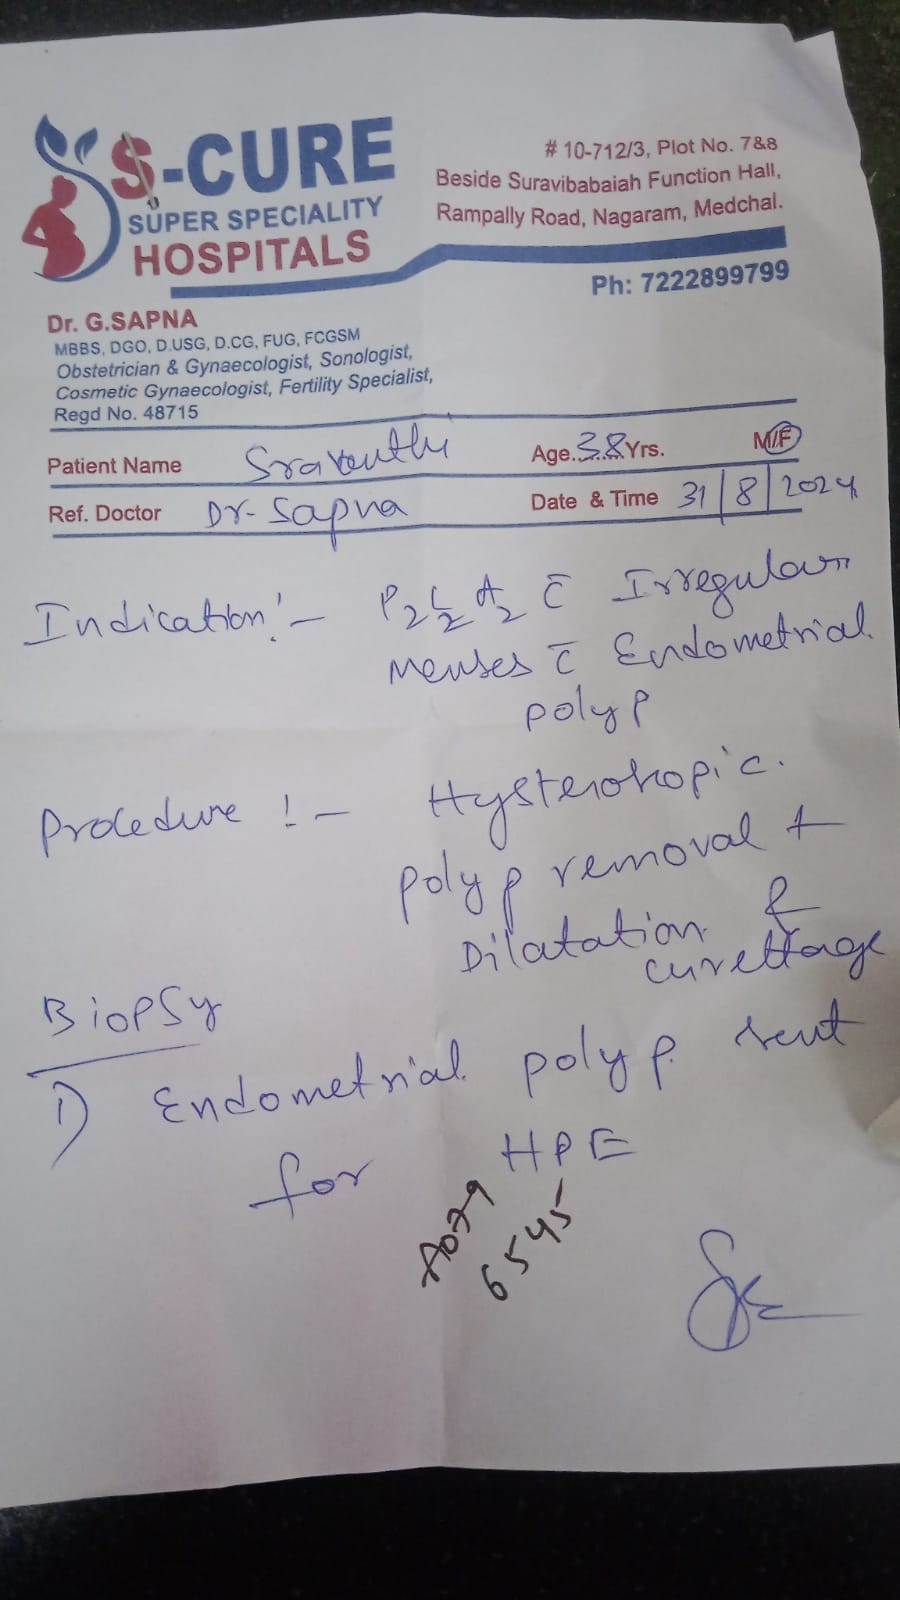 S-CURE
SUPER SPECIALITY
HOSPITALS
# 10-712/3, Plot No. 7&8
Beside Suravibabaiah Function Hall,
Rampally Road, Nagaram, Medchal.
Ph: 7222899799
Dr. G.SAPNA
MBBS, DGO, D.USG, D.CG, FUG, FCGSM
Obstetrician & Gynaecologist, Sonologist,
Cosmetic Gynaecologist, Fertility Specialist,
Regd No. 48715
Patient Name Sraventhi Age.38 Yrs. M/F
Ref. Doctor Dr- Sapna Date & Time 31/8/2024
Indication:- P2L2A2 c̄ Irregular
Menses c̄ Endometrial
polyp
Procedure :- Hysteroscopic.
polyp removal +
Dilatation &
curettage
Biopsy
1) Endometrial polyp sent
for HPE
6545